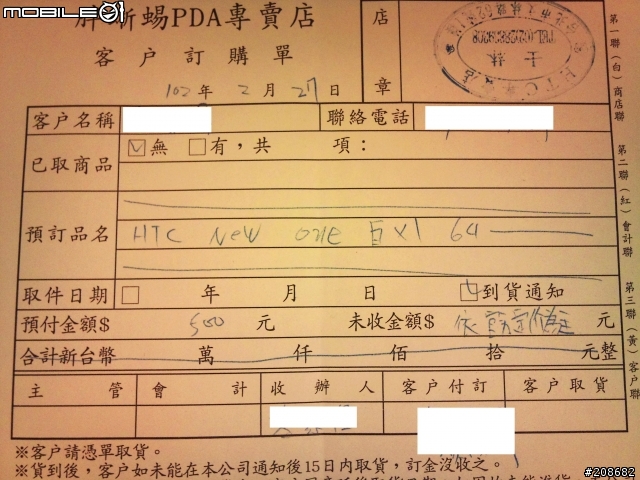 mobile01
蜴PDA專賣店
客戶訂購單
店章
102年 2月 27日
士林
第一聯(白)商店聯
第二聯(紅)會計聯
第三聯(黃)客戶聯
客戶名稱 聯絡電話
已取商品 ☑無 □有,共 項:
預訂品名 HTC New one 白x1 64
取件日期 □ 年 月 日 ☑到貨通知
預付金額$ 500 元 未收金額$ 依 元
合計新台幣 萬 仟 佰 拾 元整
主管 會計 收辦人 客戶付訂 客戶取貨
※客戶請憑單取貨。
※貨到後,客戶如未能在本公司通知後15日內取貨,訂金沒收之。
#208682